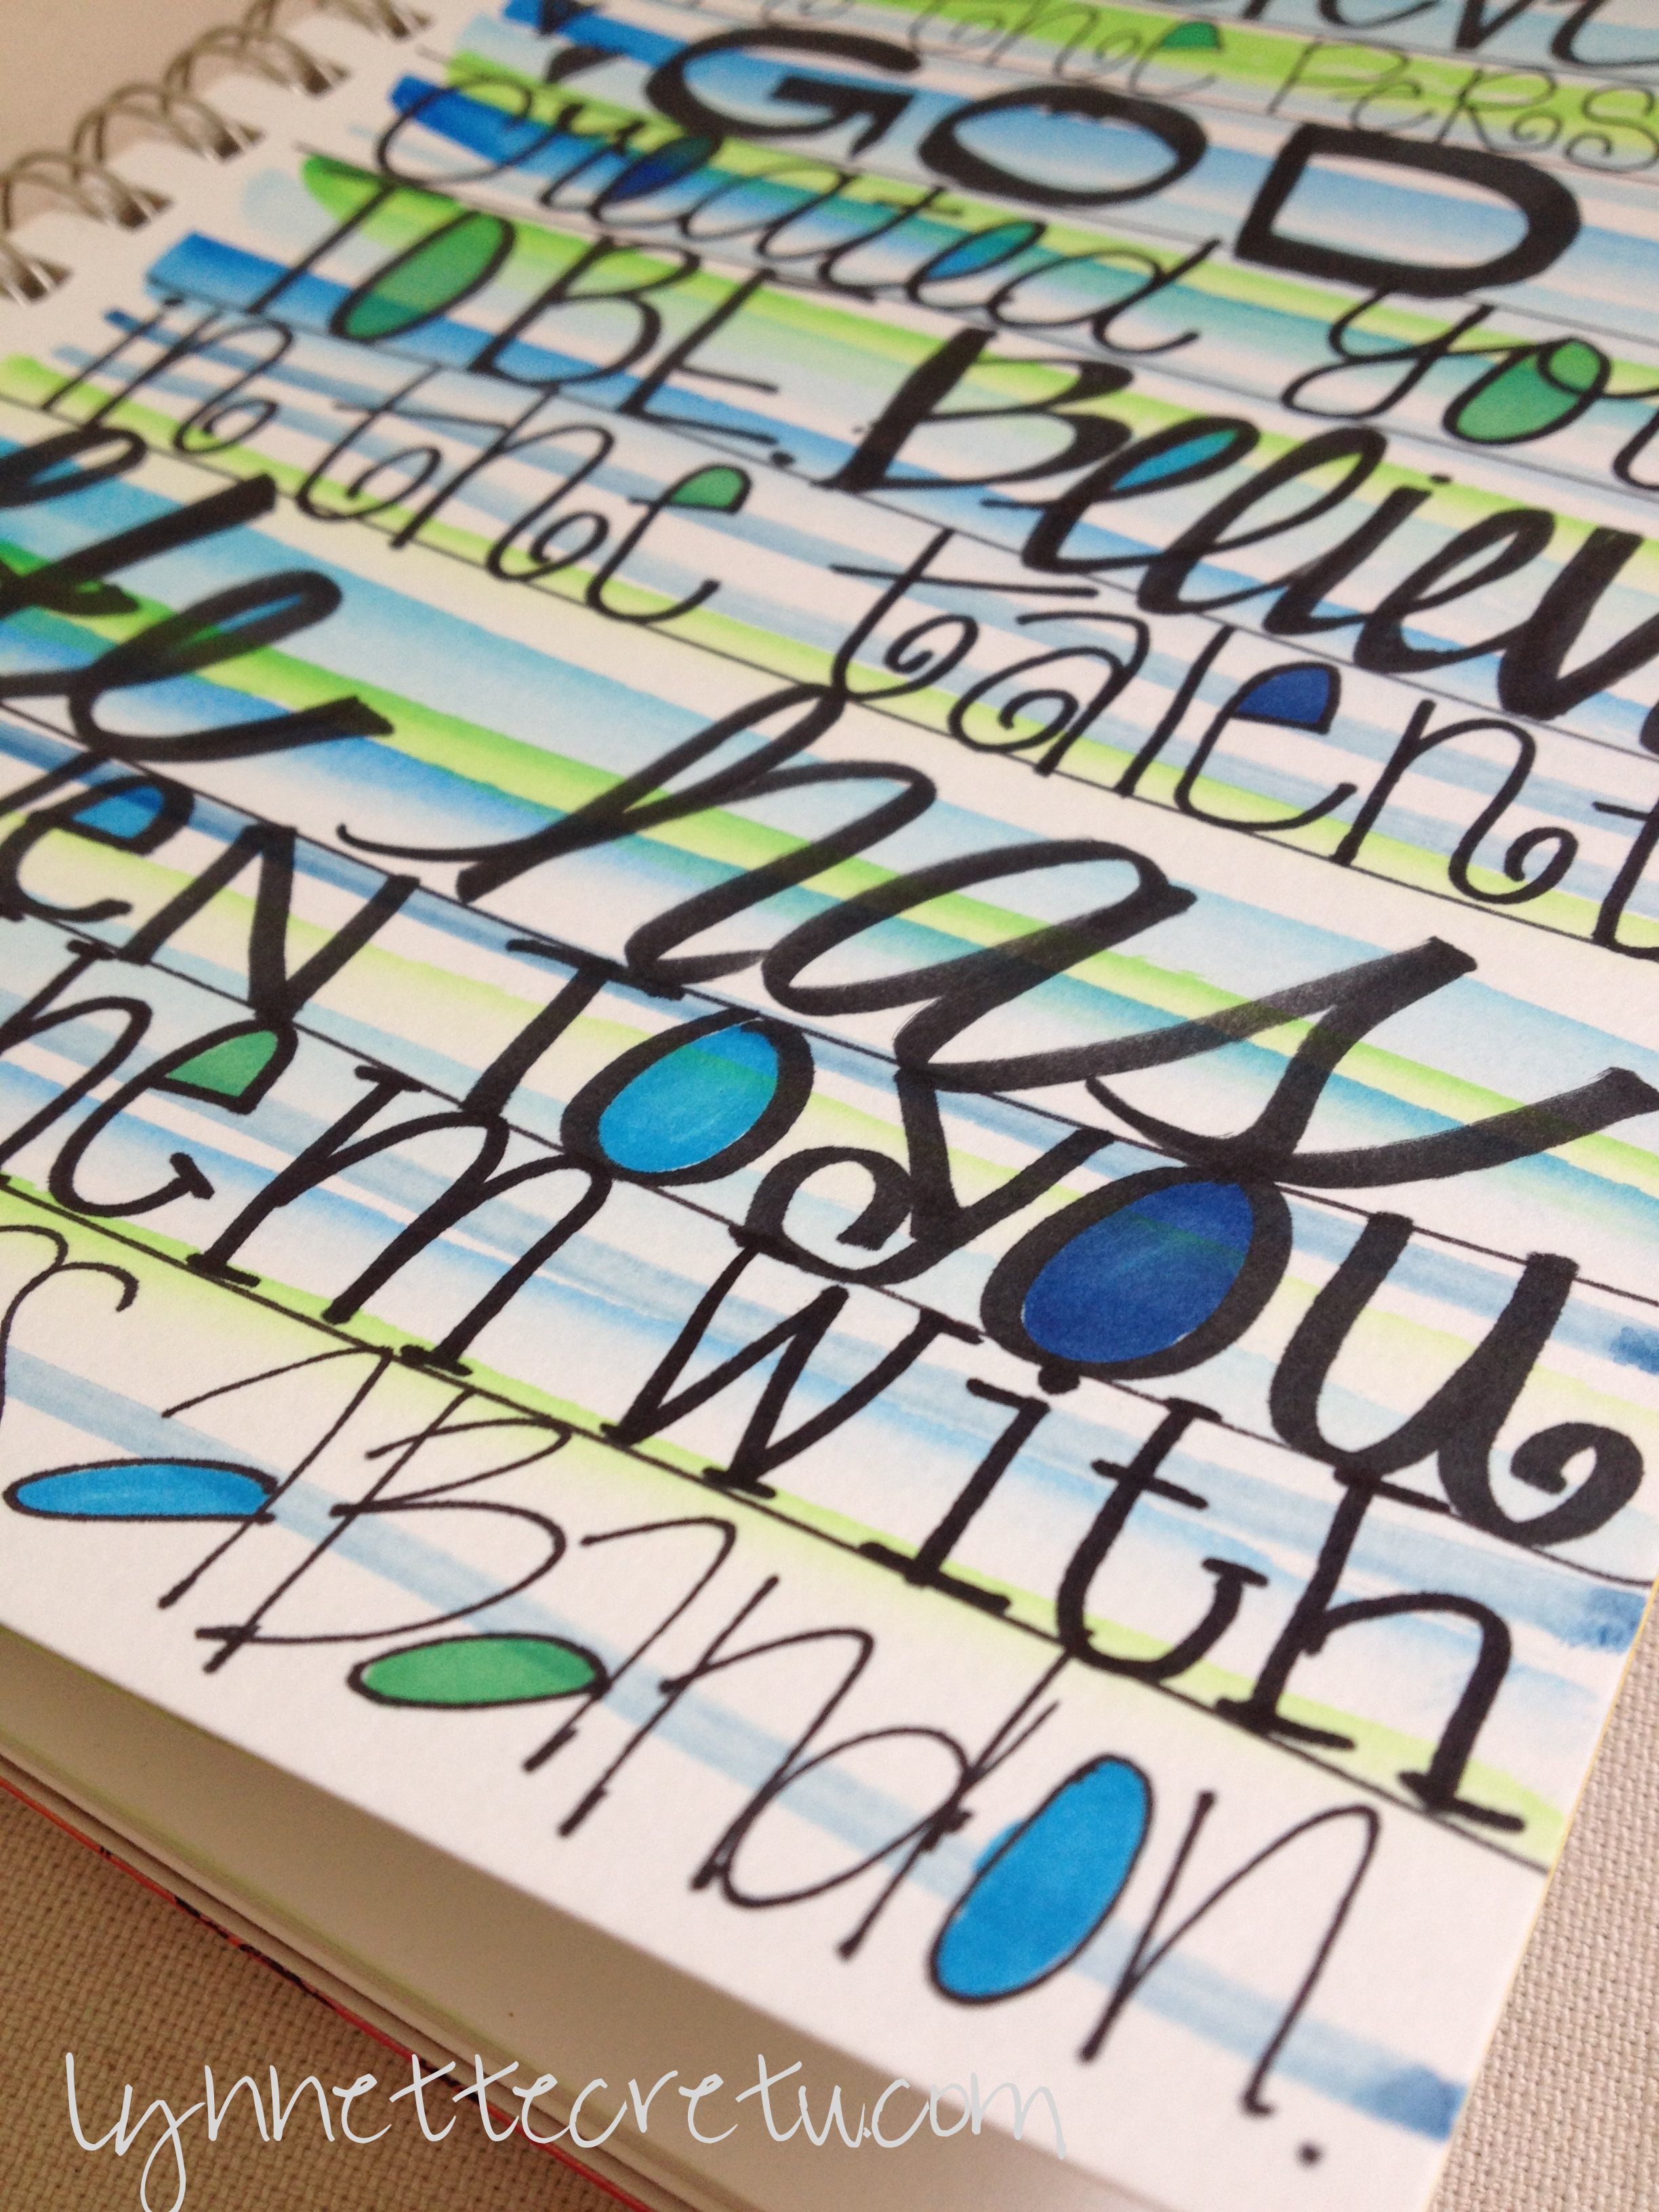 the PeRS
GOD
Created you
TO BE. Believ
in the talent
He has
eN TO you
hem with
ABandon.
lynnettecretu.com